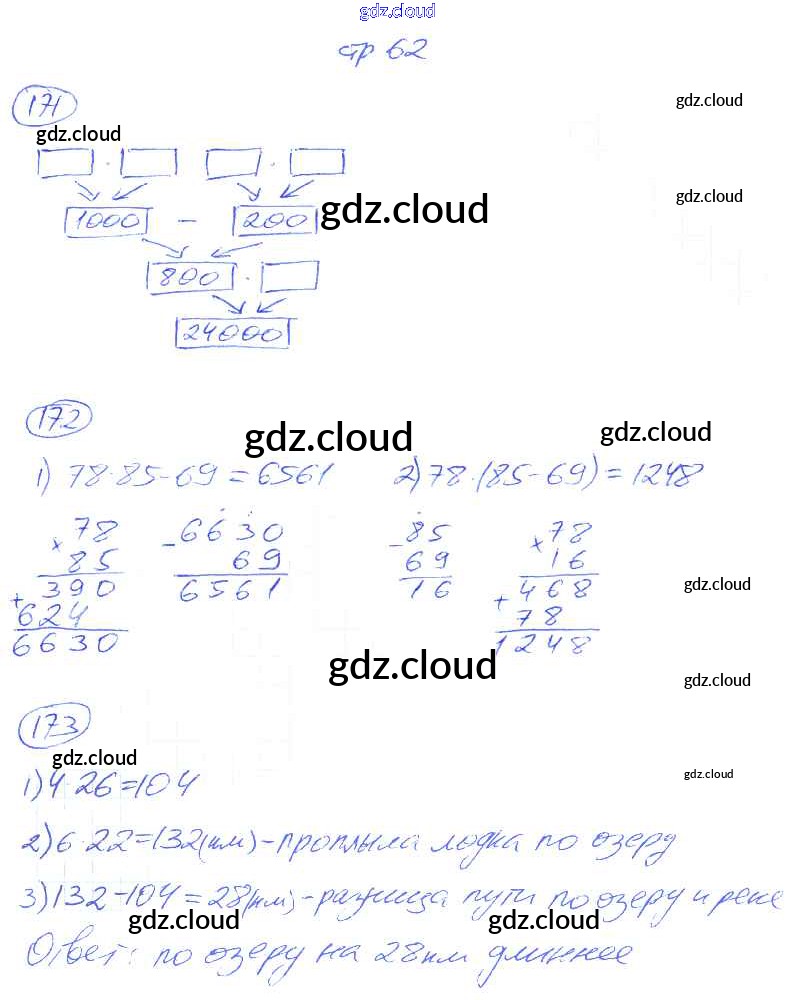 gdz.cloud
стр 62
171
gdz.cloud
gdz.cloud
·  ·
gdz.cloud
1000 - 200 gdz.cloud
800 ·
24000
172
gdz.cloud gdz.cloud
1) 78·85-69=6561 2) 78·(85-69)=1248
× 78 - 6630 - 85 × 78
85 69 69 16
+ 390 6561 16 + 468
gdz.cloud
624 78
6630 1248
gdz.cloud
gdz.cloud
173
gdz.cloud
gdz.cloud
1) 4·26=104
2) 6·22=132(км)-проплыла лодка по озеру
3) 132-104=28(км)-разница пути по озеру и реке
gdz.cloud gdz.cloud
Ответ: по озеру на 28 км длиннее